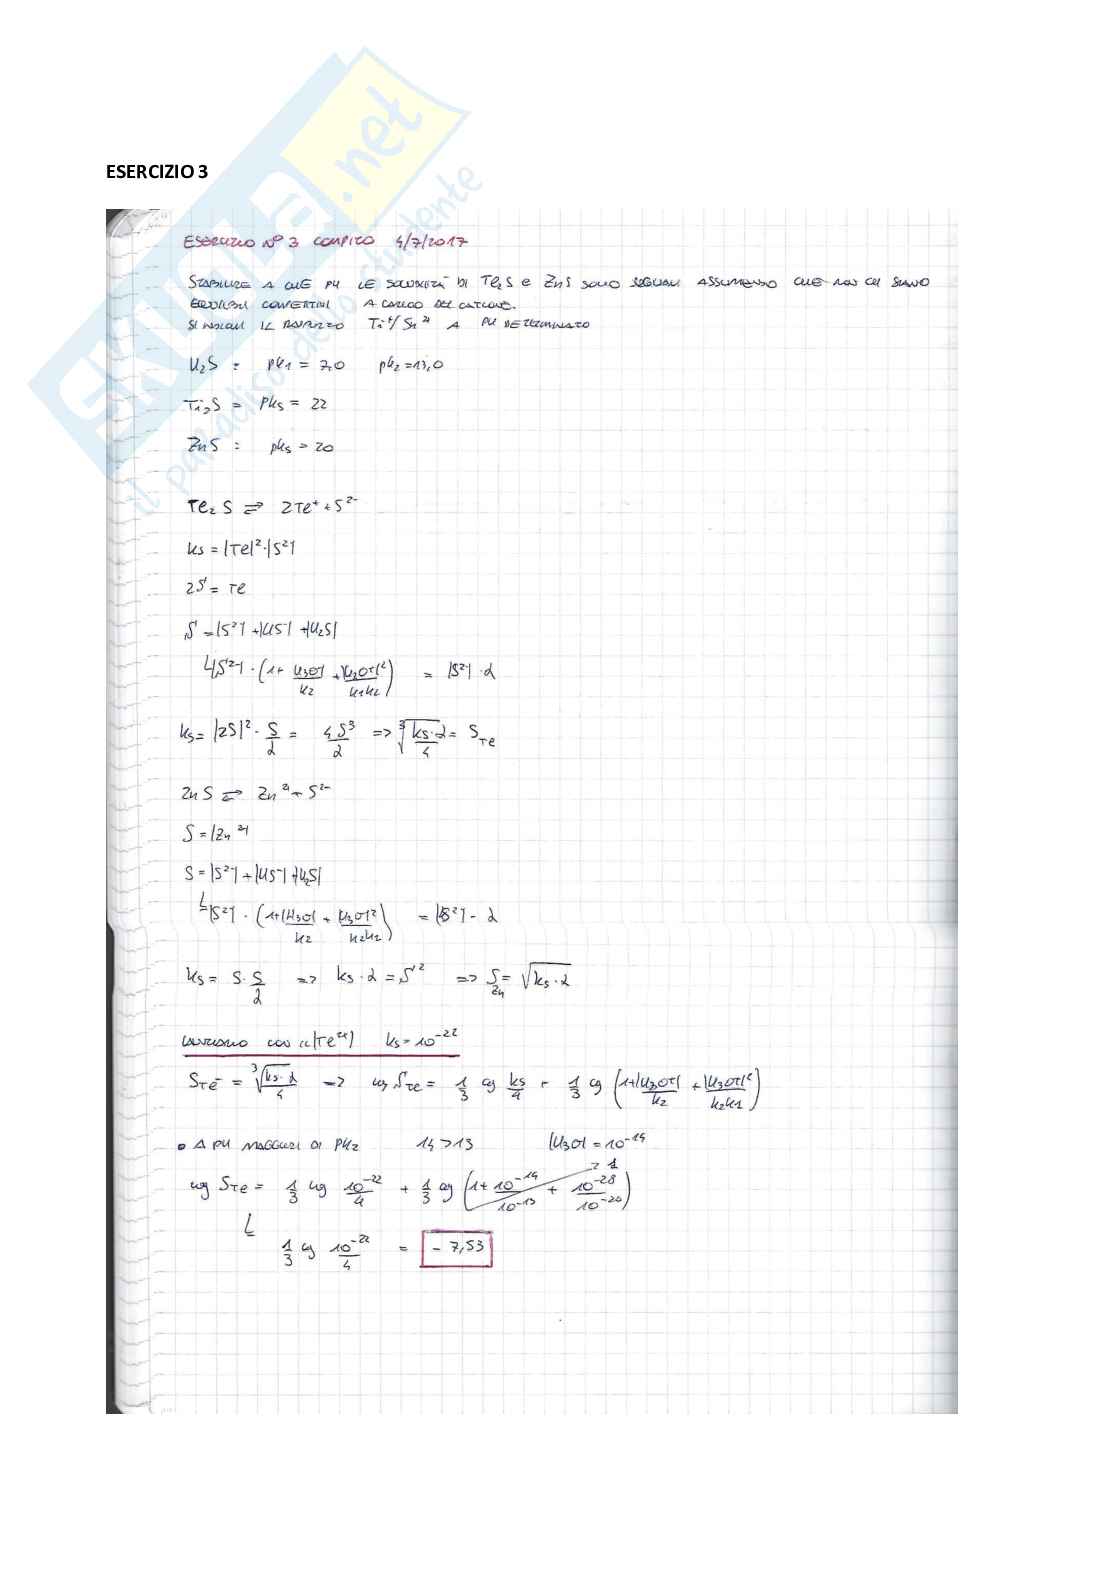 SKUOLA.net
il paradiso dello studente
ESERCIZIO 3
ESERCIZIO N° 3 COMPITO 4/7/2017
STABILIRE A CHE PH LE SOLUBILITÀ DI Te₂S E ZnS SONO UGUALI ASSUMENDO CHE NON CI SIANO
EQUILIBRI COMPETITIVI A CARICO DEL CATIONE.
SI INDICHI IL RAPPORTO Ti⁺/Sn²⁺ A PH DETERMINATO
H₂S = pK1 = 7,0 pK2 = 13,0
Ti₂S = PKs = 22
ZnS = pKs = 20
Te₂S ⇌ 2Te⁺ + S²⁻
Ks = |Te|²·|S²⁻|
2S = Te
S = |S²⁻| + |HS⁻| + |H₂S|
↳|S²⁻| · (1 + H₃O⁺/K2 + |H₃O⁺|²/K1K2) = |S²⁻| · α
Ks = |2S|² · S/α = 4S³/α => ∛(Ks·α/4) = S Te
ZnS ⇌ Zn²⁺ + S²⁻
S = |Zn²⁺|
S = |S²⁻| + |HS⁻| + |H₂S|
↳|S²⁻| · (1 + |H₃O⁺|/K2 + |H₃O⁺|²/K2K1) = |S²⁻| · α
Ks = S · S/α => Ks · α = S² => S Zn = √(Ks · α)
LAVORIAMO CON IL (Te²⁺) Ks = 10⁻²²
S Te = ∛(Ks·α/4) => log S Te = 1/3 log Ks/4 + 1/3 log (1 + |H₃O⁺|/K2 + |H₃O⁺|²/K2K1)
• A PH MAGGIORI DI PK2 14 > 13 |H₃O⁺| = 10⁻¹⁴
log S Te = 1/3 log 10⁻²²/4 + 1/3 log (1 + 10⁻¹⁴/10⁻¹³ + 10⁻²⁸/10⁻²⁰) ≈ 1
↳ 1/3 log 10⁻²²/4 = - 7,53